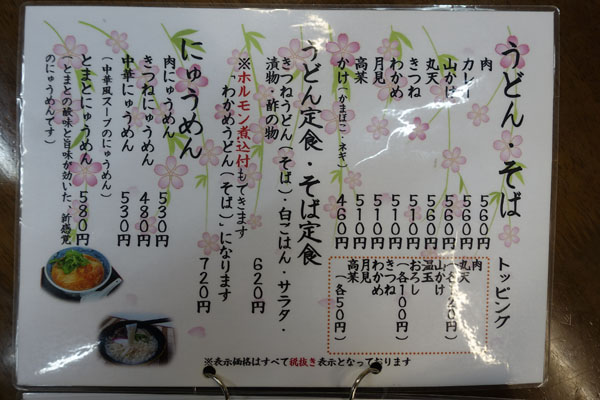 うどん・そば
肉 560円
カレー 560円
山かけ 560円
丸天 560円
きつね 510円
わかめ 510円
月見 510円
高菜 510円
かけ(かまぼこ・ネギ) 460円
トッピング
肉
丸天
山かけ
温玉
おろし
(各100円)
きつね
わかめ
月見
高菜
(各50円)
うどん定食・そば定食
きつねうどん(そば)・白ごはん・サラダ・
漬物・酢の物 620円
※ホルモン煮込付もできます
「わかめうどん(そば)」になります 720円
にゅうめん
肉にゅうめん 530円
きつねにゅうめん 480円
中華にゅうめん 530円
(中華風スープのにゅうめん)
とまとにゅうめん 580円
(とまとの酸味と旨味が効いた、新感覚
のにゅうめんです)
※表示価格はすべて税抜き表示となっております